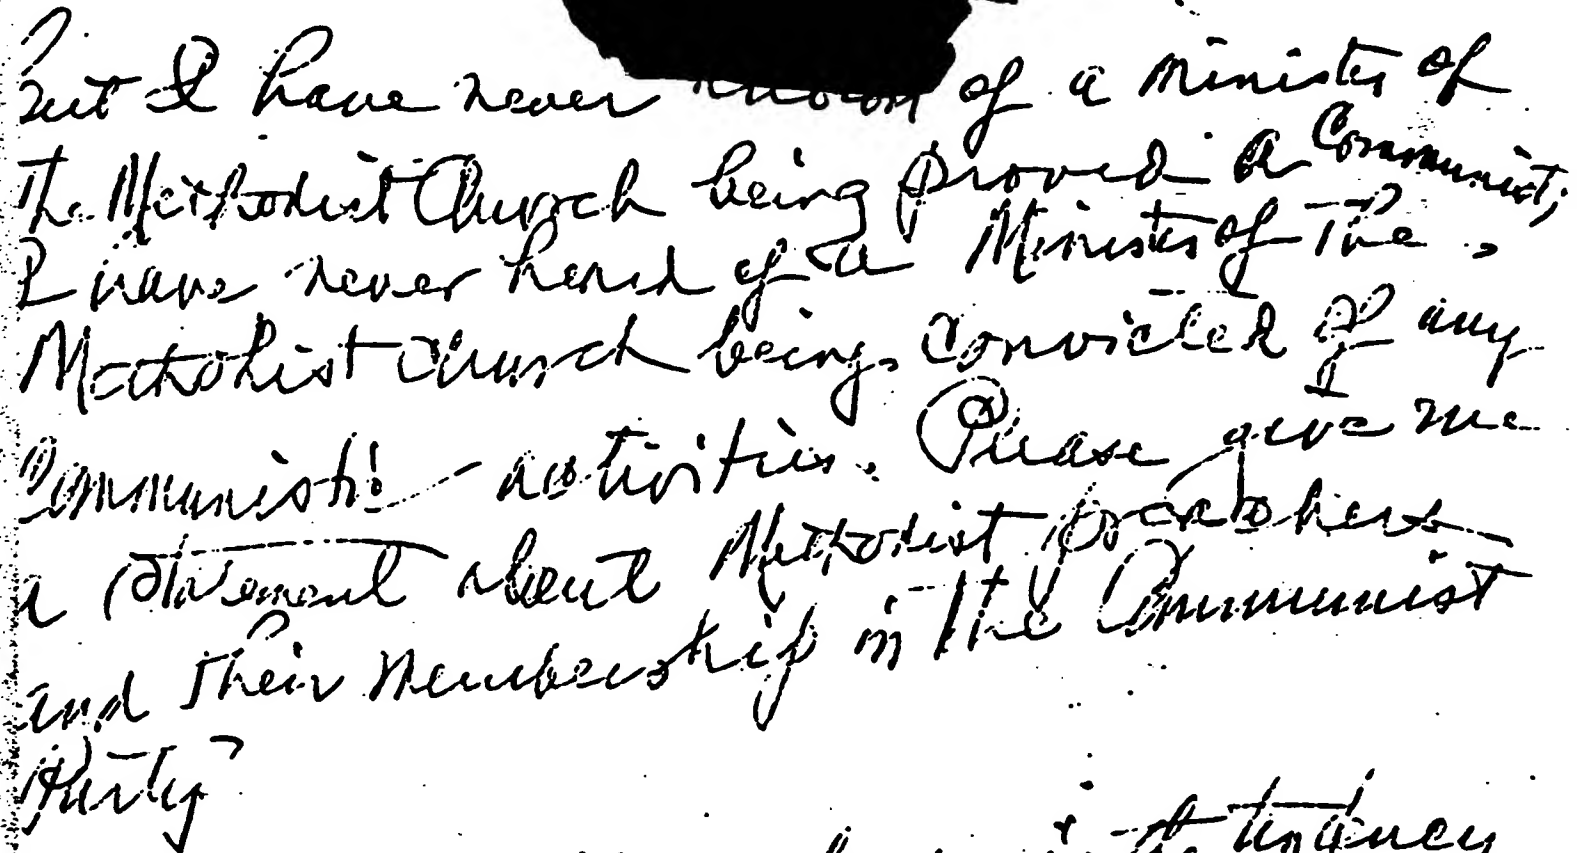 but I have never known of a Minister of
The Methodist Church being proved a Communist;
I have never heard of a Minister of The
Methodist Church being convicted of any
Communistic activities. Please give me
a statement about Methodist preachers
and their membership in the Communist
Party
in the tendency